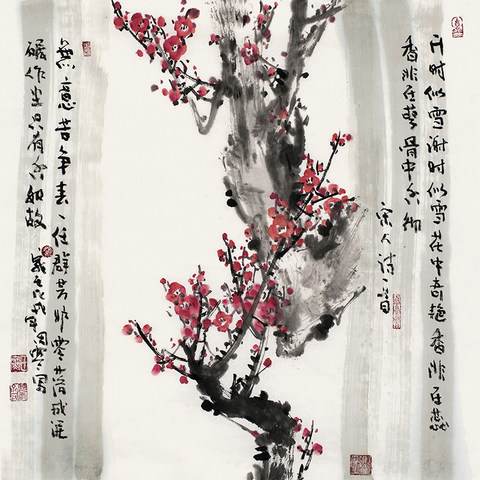 开时似雪谢时似雪花中奇绝香非在蕊
香非在萼骨中香彻
宋人诗一首
無意苦争春一任群芳妒零落成泥
碾作尘只有香如故